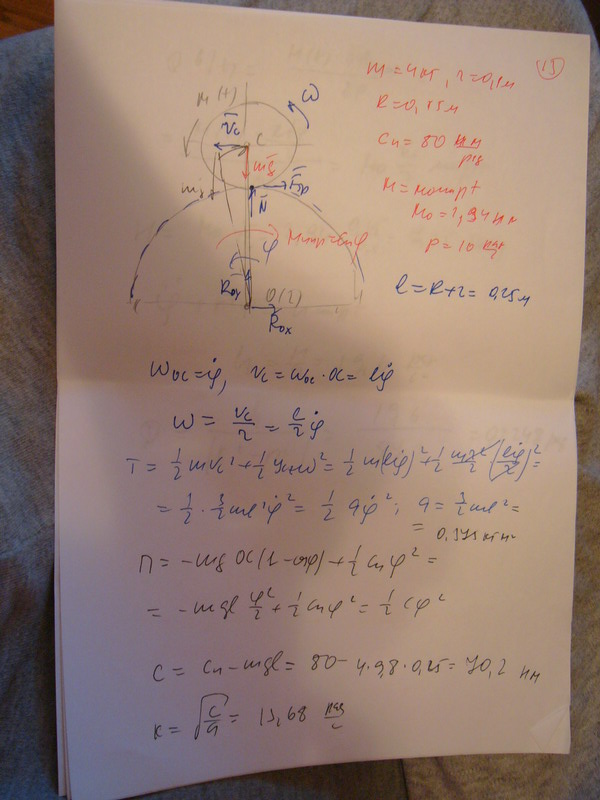 15
m = 4 кг, r = 0,1 м
R = 0,15 м
Cп = 80 Нм/рад
M = M₀ sin pt
M₀ = 1,94 Нм
p = 10 рад/с
l = R + r = 0,25 м
M (t)
ω
V̄c
C
mḡ
F̄тр
N̄
φ
Mупр = Cпφ
R̄oy
O(z)
R̄ox
ωoc = φ̇, vc = ωoc · OC = lφ̇
ω = vc/r = l/r φ̇
T = 1/2 mvc² + 1/2 Jczω² = 1/2 m(lφ̇)² + 1/2 mr²/2 (lφ̇/r)² =
= 1/2 · 3/2 ml²φ̇² = 1/2 aφ̇²; a = 3/2 ml² =
= 0,375 кг м²
П = -mg OC(1 - cosφ) + 1/2 Cпφ² =
= -mgl φ²/2 + 1/2 Cпφ² = 1/2 Cφ²
C = Cп - mgl = 80 - 4·9,8·0,25 = 70,2 Нм
k = √(C/a) = 13,68 рад/с